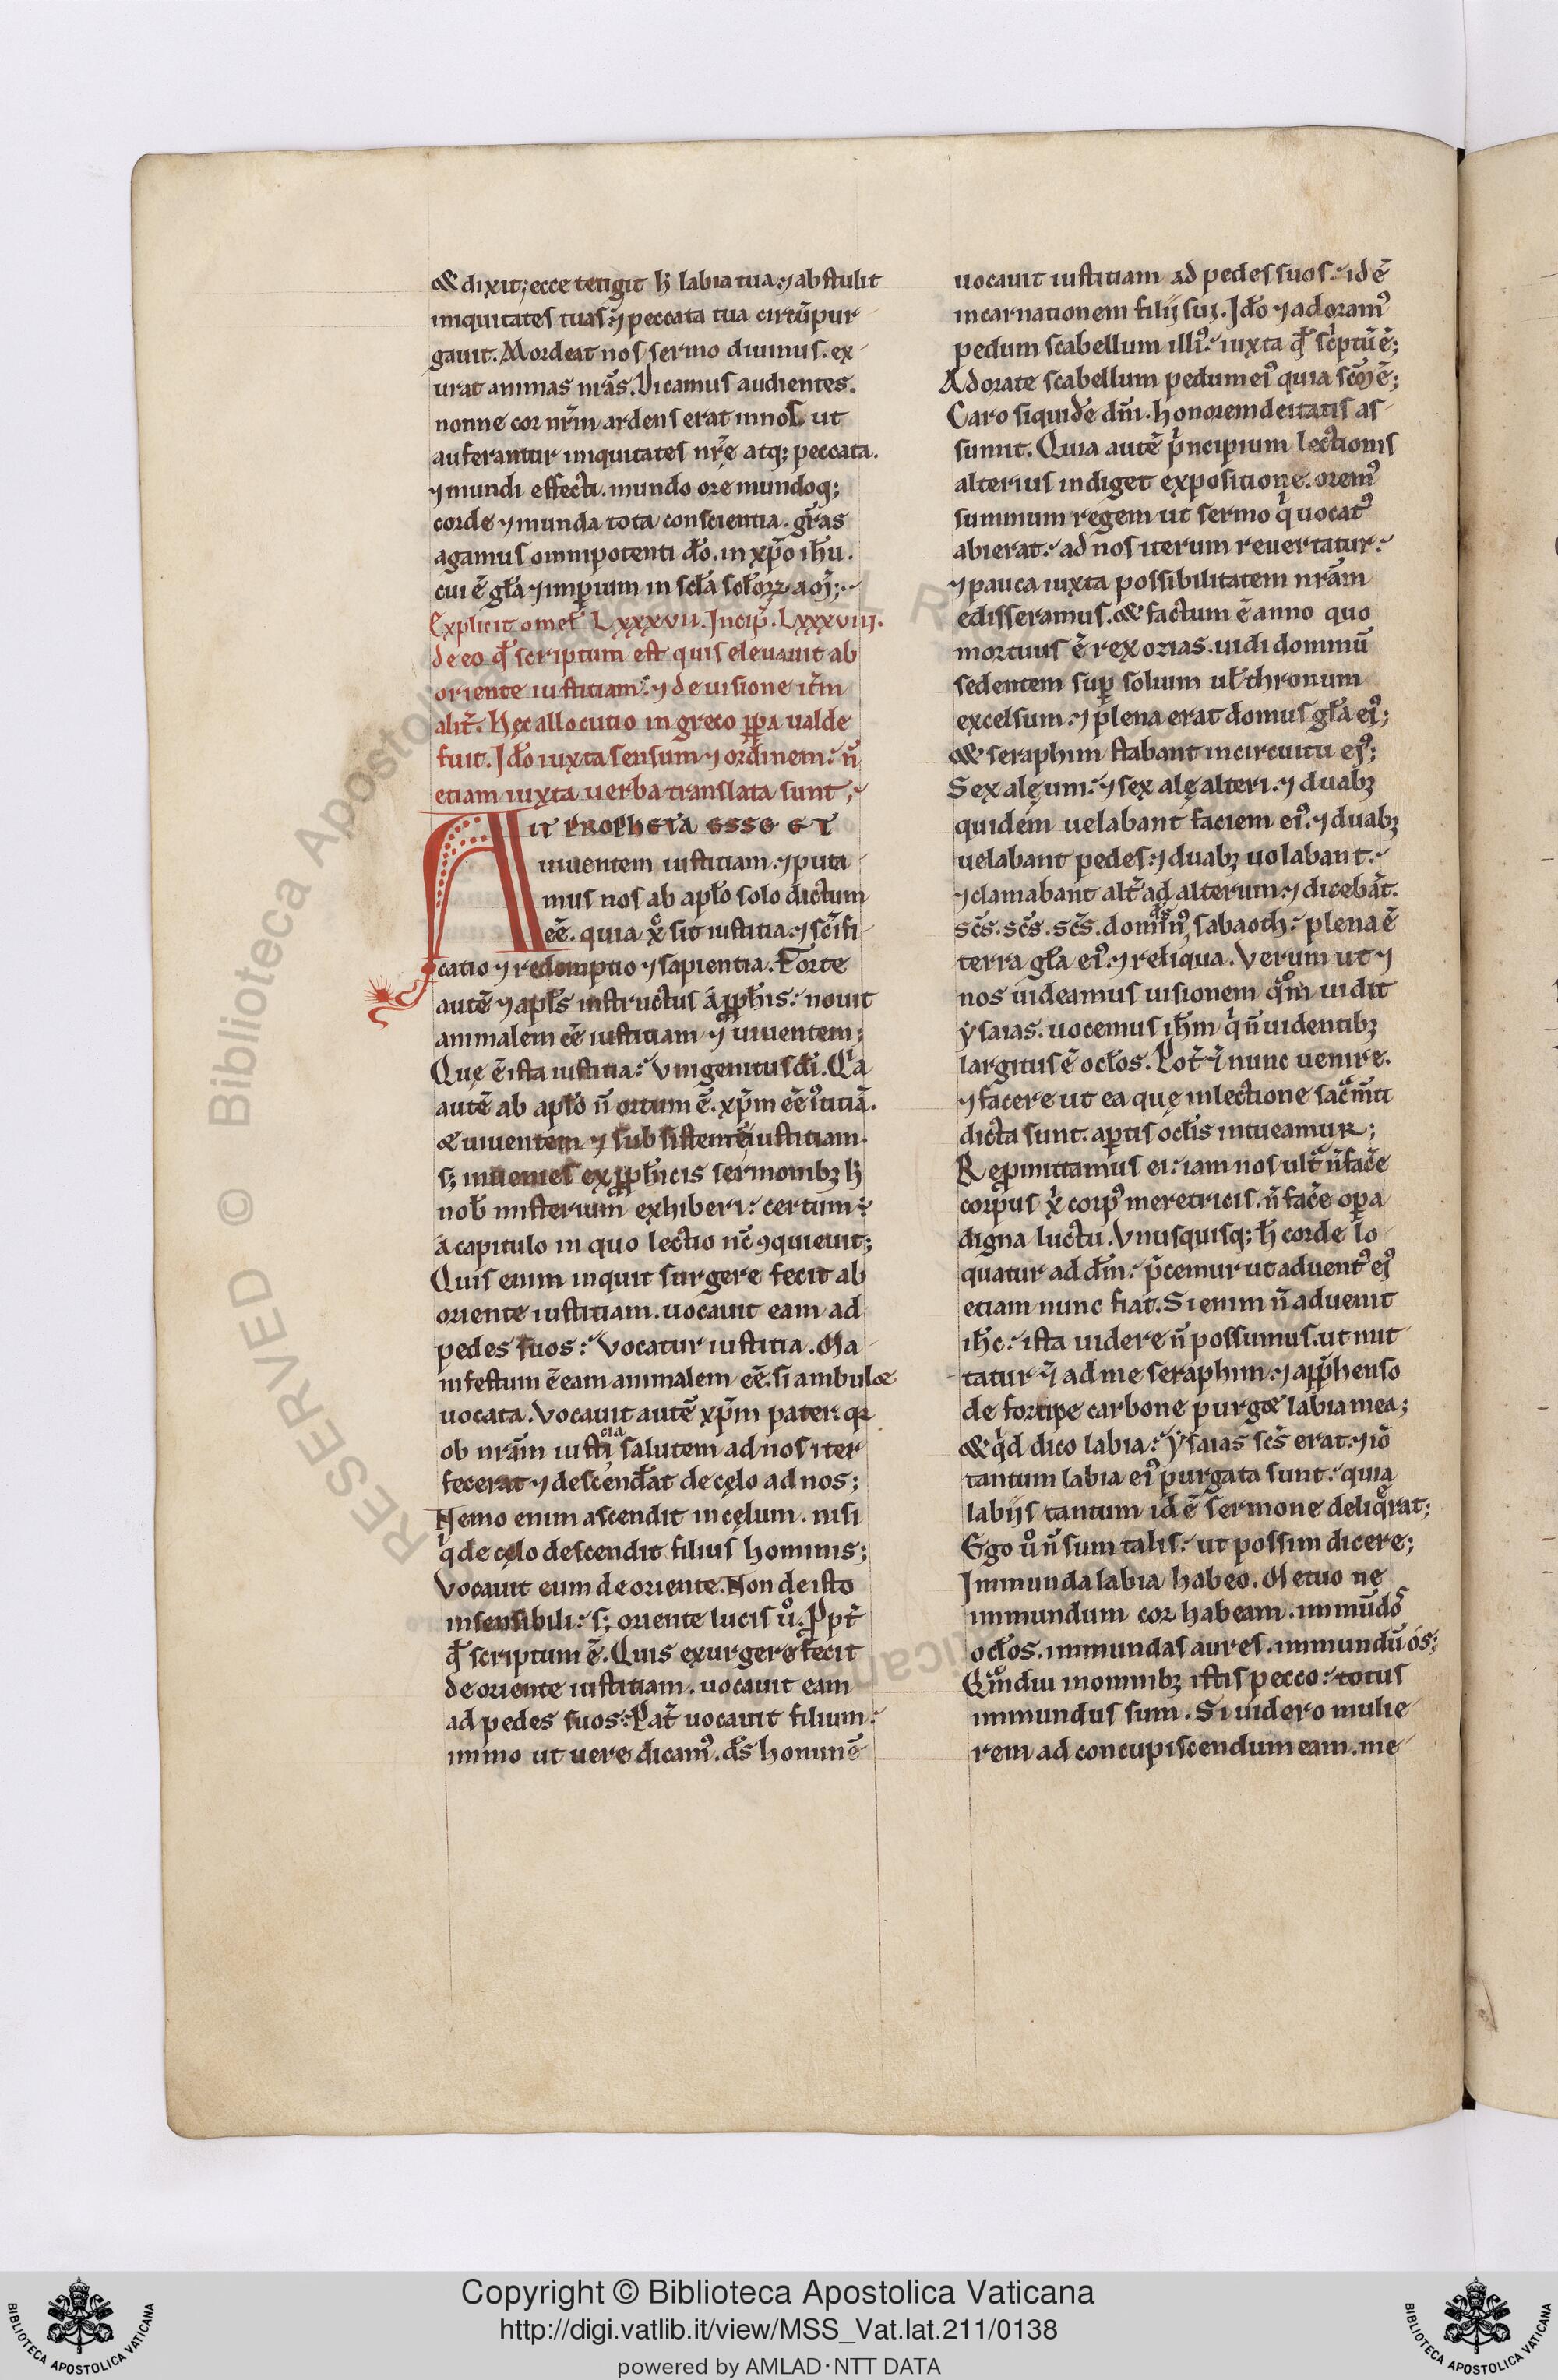 & dixit; ecce tetigit h̅ labia tua. ⁊ abstulit
iniquitates tuas. ⁊ peccata tua circu̅pur
gauit. Mordeat nos sermo diuinus. ex
urat animas nr̅as. Dicamus audientes.
nonne cor nr̅m ardens erat in nos ut
auferantur iniquitates nr̅ę atq; peccata.
⁊ mundi effecti. mundo ore mundoq;
corde ⁊ munda tota conscientia. gr̅as
agamus omnipotenti do̅. in xp̅o ih̅u.
cui e̅ gl̅a ⁊ imperium in sc̅la
Explicit omel̅ Lxxxvii. Incip̅. Lxxxviii.
de eo qd̅ scriptum est quis eleuauit ab
oriente iustitiam. ⁊ de uisione it̅m
alit̅. Hęc allocutio in greco ꝓpa ualde
fuit. Ido̅ iuxta sensum ⁊ ordinem. n̅
etiam iuxta uerba translata sunt;
AIT PROPHETA ESSE ET
uiuentem iustitiam. ⁊ puta
mus nos ab apl̅o solo dictum
ee̅. quia x̅ sit iustitia ⁊ sc̅ifi
catio ⁊ redemptio ⁊ sapientia. Forte
aute̅ ⁊ apl̅s instructus a ꝓph̅is. nouit
animalem ee̅ iustitiam ⁊ uiuentem;
Quę e̅ ista iustitia. Vnigenitus di̅. Qa
aute̅ ab apl̅o n̅ ortum e̅. xp̅m ee̅ iustitia̅.
& uiuentem ⁊ subsistente̅ iustitiam.
s; inuenies ex ꝓph̅icis sermonibꝫ h̅
nob̅ misterium exhiberi. certum ÷
a capitulo in quo lectio nc̅ ꝯquieuit;
Quis enim inquit surgere fecit ab
oriente iustitiam. uocauit eam ad
pedes suos. Vocatur iustitia. Ma
nifestum e̅ eam animalem ee̅. si ambulæ
uocata. Vocauit aute̅ xp̅m pater. qr
ob nr̅am iusticia salutem ad nos iter
fecerat ⁊ descend̅at de cęlo ad nos;
Nemo enim ascendit in cęlum. nisi
q̍ de cęlo descendit filius hominis;
Vocauit eum de oriente. Non de isto
insensibili. s; oriente lucis uo̅. Ppt̅
qd̅ scriptum e̅. Quis exurgere fecit
de oriente iustitiam. uocauit eam
ad pedes suos. Pat̅ uocauit filium.
immo ut uere dicamꝰ. ds̅ homine̅
uocauit iustitiam ad pedes suos. id e̅
incarnationem filij sui. Ido̅ ⁊ adoramꝰ
pedum scabellum illiꝰ. iuxta qd̅ sc̍ptu̅ e̅;
Adorate scabellum pedum eiꝰ quia sc̅m e̅;
Caro siquide̅ dn̅i. honorem deitatis as
sumit. Quia aute̅ p̍ncipium lectionis
alterius indiget expositione. oremꝰ
summum regem ut sermo q̍ uocatꝰ
abierat. ad nos iterum reuertatur.
⁊ pauca iuxta possibilitatem nr̅am
edisseramus. & factum e̅ anno quo
mortuus e̅ rex ozias. uidi dominu̅
sedentem sup̅ solium ul̅ thronum
excelsum. ⁊ plena erat domus gl̅a eiꝰ;
& seraphin stabant in circuitu eiꝰ;
Sex alę uni. ⁊ sex alę alteri. ⁊ duabꝫ
quidem uelabant faciem eiꝰ. ⁊ duabꝫ
uelabant pedes. ⁊ duabꝫ uolabant.
⁊ clamabant alt̅ ad alterum. ⁊ diceba̅t.
sc̅s. sc̅s. sc̅s. dominꝰ ds̅ sabaoth. plena e̅
terra gl̅a eiꝰ. ⁊ reliqua. Verum ut ⁊
nos uideamus uisionem qm̅ uidit
ẏsaias. uocemus ih̅m q̍ n̅ uidentibꝫ
largitus e̅ ocl̅os. Pot̅ ⁊ nunc uenire.
⁊ facere ut ea quę in lectione sac̅m̅ti
dicta sunt. aptis ocl̅is intueamur;
Repmittamus ei. iam nos ult̅ n̅ face̅
corpus x̅ corpꝰ meretricis. n̅ face̅ opa
digna luctu. Vnusquisq; h̅ corde lo
quatur ad dm̅. p̅cemur ut aduentꝰ eiꝰ
etiam nunc fiat. Si enim n̅ aduenit
ih̅c. ista uidere n̅ possumus. ut mit
tatur ⁊ ad me seraphin. ⁊ app̅henso
de forcipe carbone purgæ labia mea;
& q̍d dico labia. ẏsaias sc̅s erat. ⁊ io̅
tantum labia eiꝰ purgata sunt. quia
labijs tantum id e̅ sermone deliq̅rat;
Ego uo̅ n̅ sum talis. ut possim dicere;
Immunda labia habeo. Metuo ne
immundum cor habeam. immu̅dos
ocl̅os. immundas aures. immundu̅ os;
Qm̅diu in omnibꝫ istis pecco. totus
immundus sum. Si uidero mulie
rem ad concupiscendum eam. me
RESERVED © Biblioteca Apostolica Vaticana
Copyright © Biblioteca Apostolica Vaticana
http://digi.vatlib.it/view/MSS_Vat.lat.211/0138
powered by AMLAD·NTT DATA
BIBLIOTECA APOSTOLICA VATICANA
BIBLIOTECA APOSTOLICA VATICANA